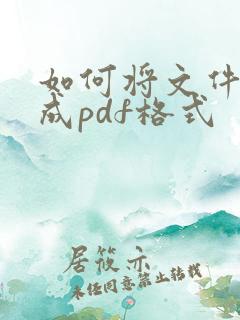 如何将文件
成pdf格式
居筱亦
未经同意禁止转载